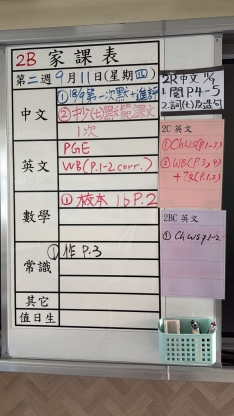 2B 家課表
第二週 9月11日(星期四)
中文
① 18/9 第一次默+進評
② 抄(七)默範課文
1次
英文
PGE
WB(P.1-2 corr.)
數學
① 校本 1b P.2
常識
① 作 P.3
其它
值日生
2R 中文 11/9
1. 閱 P.4-5
2. 詞(七)及造句
2C 英文
① Ch WS(P.1-2)
② WB(P.
2BC 英文
① Ch WS P.1-2